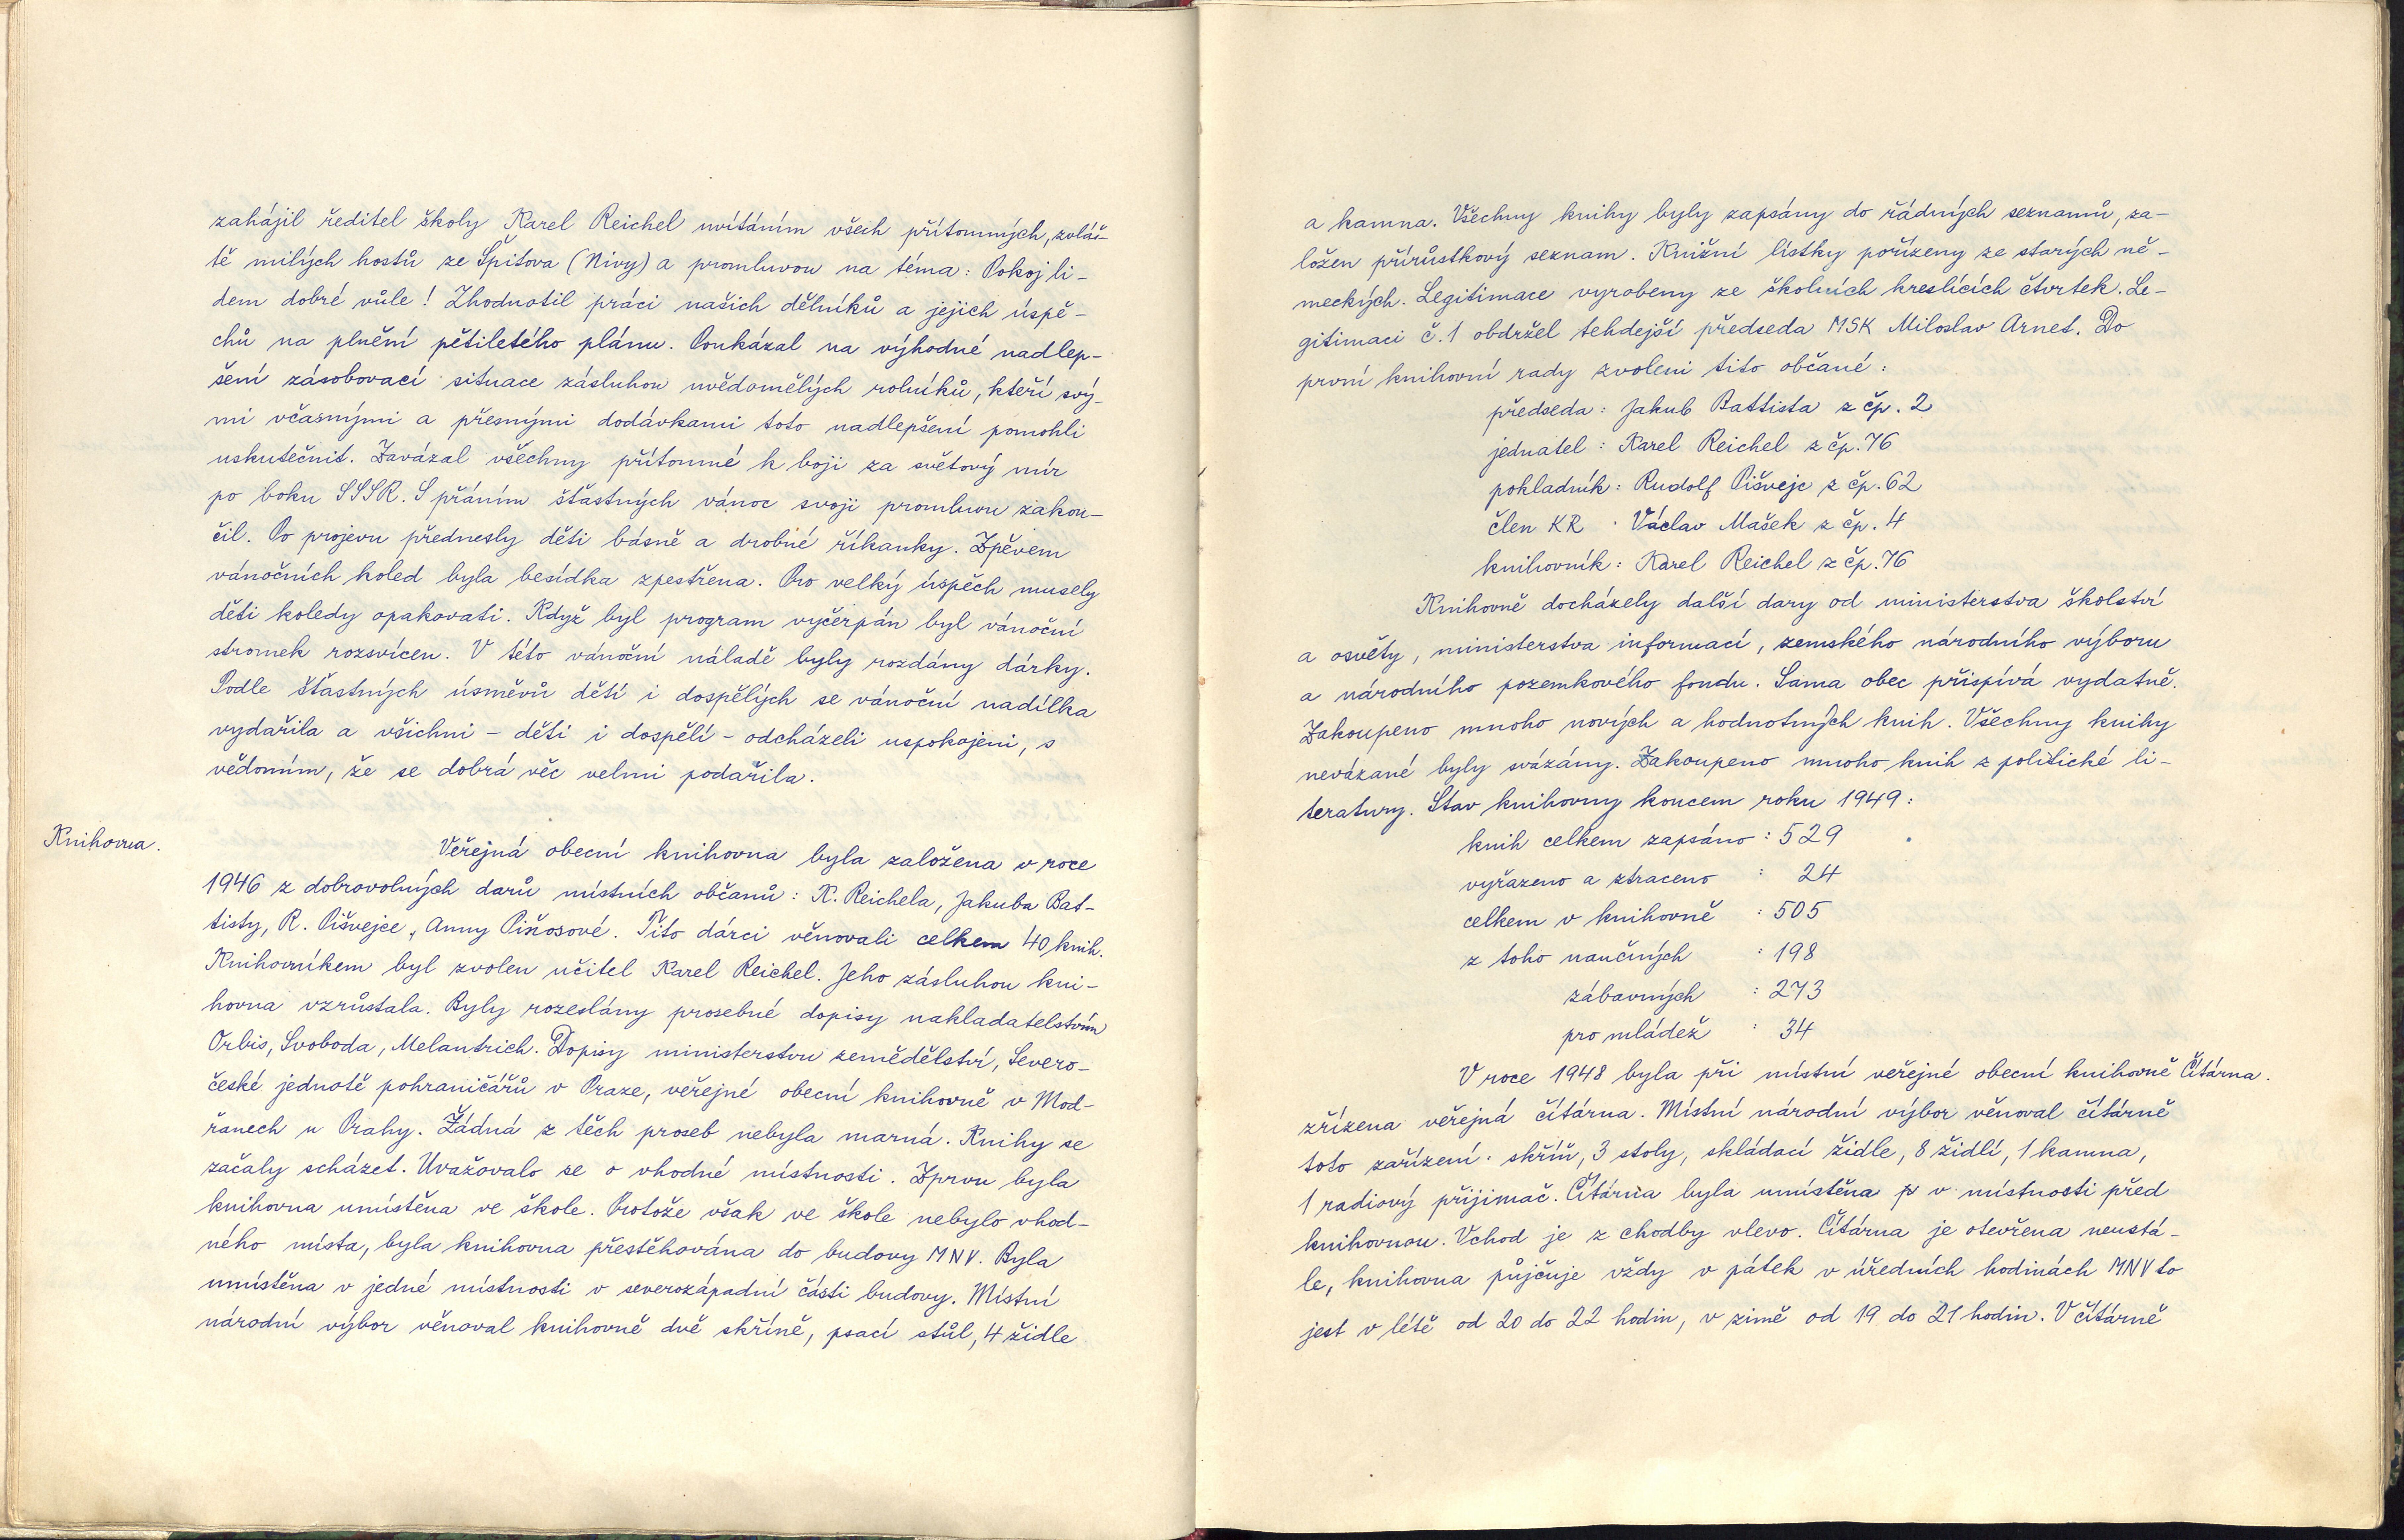 zahájil ředitel školy Karel Reichel uvítáním všech přítomných, zvláš-
tě milých hostů ze Špitova (Nivy) a promluvou na téma: Pokoj li-
dem dobré vůle! Zhodnotil práci našich dělníků a jejich úspě-
chů na plnění pětiletého plánu. Poukázal na výhodné nadlep-
šení zásobovací situace zásluhou uvědomělých rolníků, kteří svý-
mi včasnými a přesnými dodávkami toto nadlepšení pomohli
uskutečnit. Zavázal všechny přítomné k boji za světový mír
po boku SSSR. S přáním šťastných vánoc svoji promluvu zakon-
čil. Po projevu přednesly děti básně a drobné říkanky. Zpěvem
vánočních koled byla besídka zpestřena. Pro velký úspěch musely
děti koledy opakovati. Když byl program vyčerpán byl vánoční
stromek rozsvícen. V této vánoční náladě byly rozdány dárky.
Podle šťastných úsměvů dětí i dospělých se vánoční nadílka
vydařila a všichni – děti i dospělí – odcházeli uspokojeni, s
vědomím, že se dobrá věc velmi podařila.
Knihovna.
Veřejná obecní knihovna byla založena v roce
1946 z dobrovolných darů místních občanů: K. Reichela, Jakuba Bat-
tisty, R. Pišvejce, Anny Piňosové. Tito dárci věnovali celkem 40 knih.
Knihovníkem byl zvolen učitel Karel Reichel. Jeho zásluhou kni-
hovna vzrůstala. Byly rozeslány prosebné dopisy nakladatelstvím
Orbis, Svoboda, Melantrich. Dopisy ministerstvu zemědělství, Severo-
české jednotě pohraničářů v Praze, veřejné obecní knihovně v Mod-
řanech u Prahy. Žádná z těch proseb nebyla marná. Knihy se
začaly scházet. Uvažovalo se o vhodné místnosti. Zprvu byla
knihovna umístěna ve škole. Protože však ve škole nebylo vhod-
ného místa, byla knihovna přestěhována do budovy MNV. Byla
umístěna v jedné místnosti v severozápadní části budovy. Místní
národní výbor věnoval knihovně dvě skříně, psací stůl, 4 židle
a kamna. Všechny knihy byly zapsány do řádných seznamů, za-
ložen přírůstkový seznam. Knižní lístky pořízeny ze starých ně-
meckých. Legitimace vyrobeny ze školních kreslících čtvrtek. Le-
gitimaci č. 1 obdržel tehdejší předseda MSK Miloslav Arnet. Do
první knihovní rady zvoleni tito občané:
předseda: Jakub Battista z čp. 2
jednatel: Karel Reichel z čp. 76
pokladník: Rudolf Pišvejc z čp. 62
člen KR : Václav Mašek z čp. 4
knihovník: Karel Reichel z čp. 76
Knihovně docházely další dary od ministerstva školství
a osvěty, ministerstva informací, zemského národního výboru
a národního pozemkového fondu. Sama obec přispívá vydatně.
Zakoupeno mnoho nových a hodnotných knih. Všechny knihy
nevázané byly svázány. Zakoupeno mnoho knih z politické li-
teratury. Stav knihovny koncem roku 1949:
knih celkem zapsáno: 529
vyřazeno a ztraceno : 24
celkem v knihovně : 505
z toho naučných : 198
zábavných : 273
pro mládež : 34
V roce 1948 byla při místní veřejné obecní knihovně Čítárna.
zřízena veřejná čítárna. Místní národní výbor věnoval čítárně
toto zařízení: skříň, 3 stoly, skládací židle, 8 židlí, 1 kamna,
1 radiový přijimač. Čítárna byla umístěna p v místnosti před
knihovnou. Vchod je z chodby vlevo. Čítárna je otevřena neustá-
le, knihovna půjčuje vždy v pátek v úředních hodinách MNV to
jest v létě od 20 do 22 hodin, v zimě od 19 do 21 hodin. V čítárně